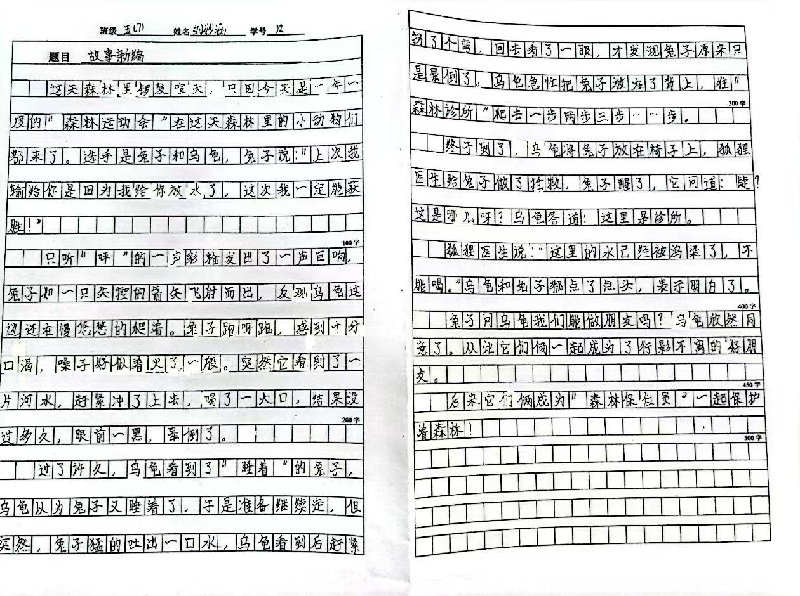 班级 五(7) 姓名 学号 12
题目 故事新编
这天森林里锣鼓喧天，只因今天是一年一
度的“森林运动会”在这天森林里的小动物们
都来了。选手是兔子和乌龟，兔子说：“上次我
输给你是因为我给你放水了，这次我一定能获
胜！”
100字
只听“呯”的一声彭枪发出了一声巨响，
兔子如一只失控的箭矢飞射而出，反观乌龟这
边还在慢悠悠的爬着。兔子跑呀跑，感到十分
口渴，嗓子好似着火了一般。突然它看到了一
片河水，赶紧冲了上去，喝了一大口，结果没
200字
过多久，眼前一黑，晕倒了。
过了许久，乌龟看到了“睡着”的兔子，
乌龟认为兔子又睡着了，于是准备继续走，但
突然，兔子猛的吐出一口水，乌龟看到后赶紧
了个弯，回去看了一眼，才发现兔子原来只
是晕倒了，乌龟急忙把兔子放在了背上，往“
300字
森林诊所“爬去一步两步三步……步。
终于到了，乌龟将兔子放在椅子上，狐狸
医生给兔子做了抢救，兔子醒了，它问道：咦？
这是哪儿呀？乌龟答道：这里是诊所。
狐狸医生说：“这里的水已经被污染了，不
能喝。”乌龟和兔子都点了点头，表示明白了。
400字
兔子问乌龟我们能做朋友吗？乌龟欣然同
意了。从此它们俩一起成为了形影不离的“好朋
友。
450字
后来它们俩成为“森林保护员”一起保护
着森林！
500字